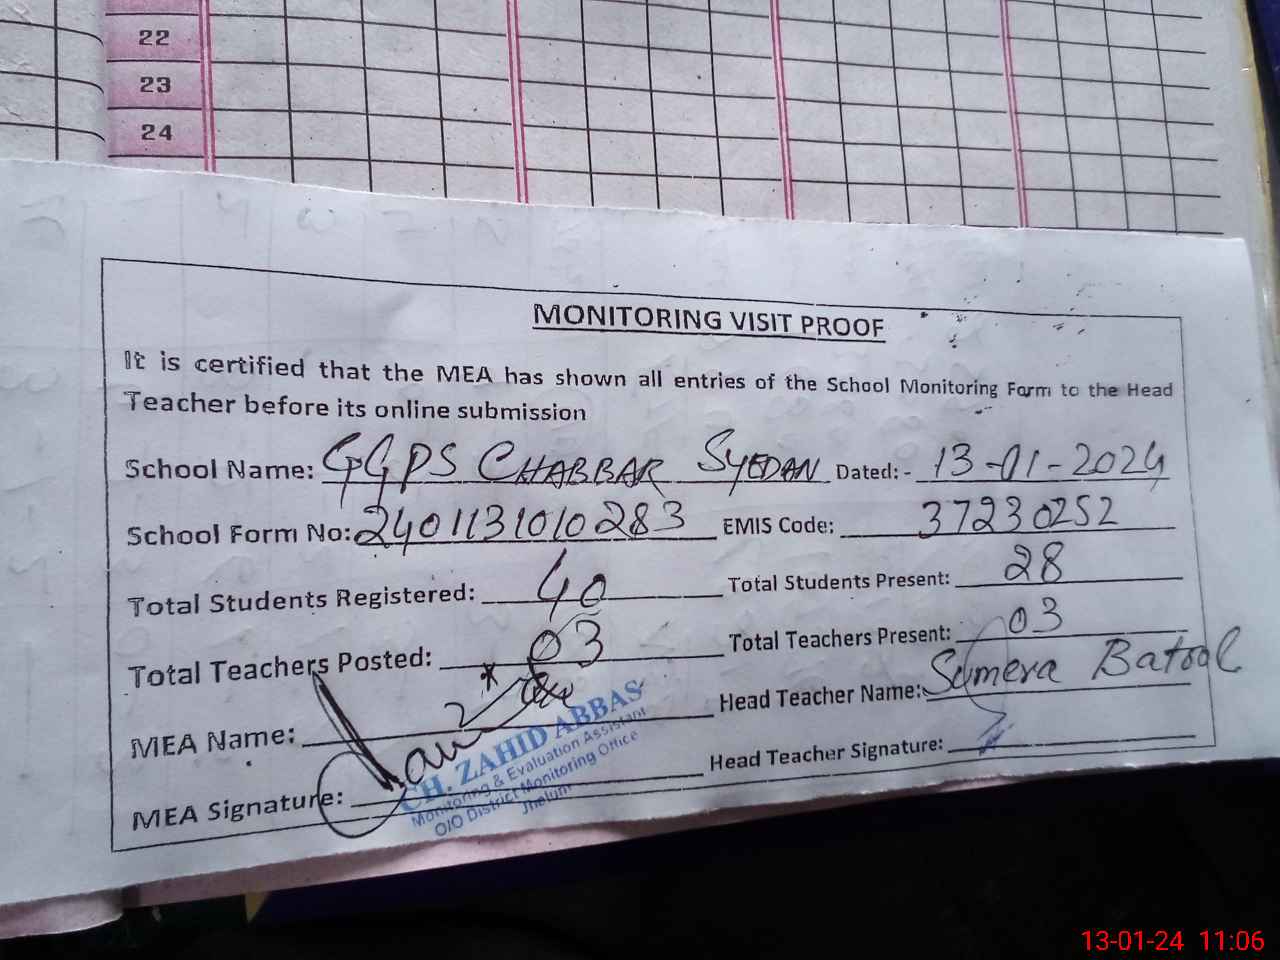 22
23
24
MONITORING VISIT PROOF
It is certified that the MEA has shown all entries of the School Monitoring Form to the Head
Teacher before its online submission
School Name: GGPS CHABBAR SYEDAN Dated: - 13-01-2024
School Form No: 2401131010283 EMIS Code: 37230252
Total Students Registered: 40 Total Students Present: 28
Total Teachers Posted: 03 Total Teachers Present: 03
MEA Name: Head Teacher Name: Sumera Batool
MEA Signature: Head Teacher Signature:
CH. ZAHID ABBAS
Monitoring & Evaluation Assistant
O/O District Monitoring Office
Jhelum
13-01-24 11:06